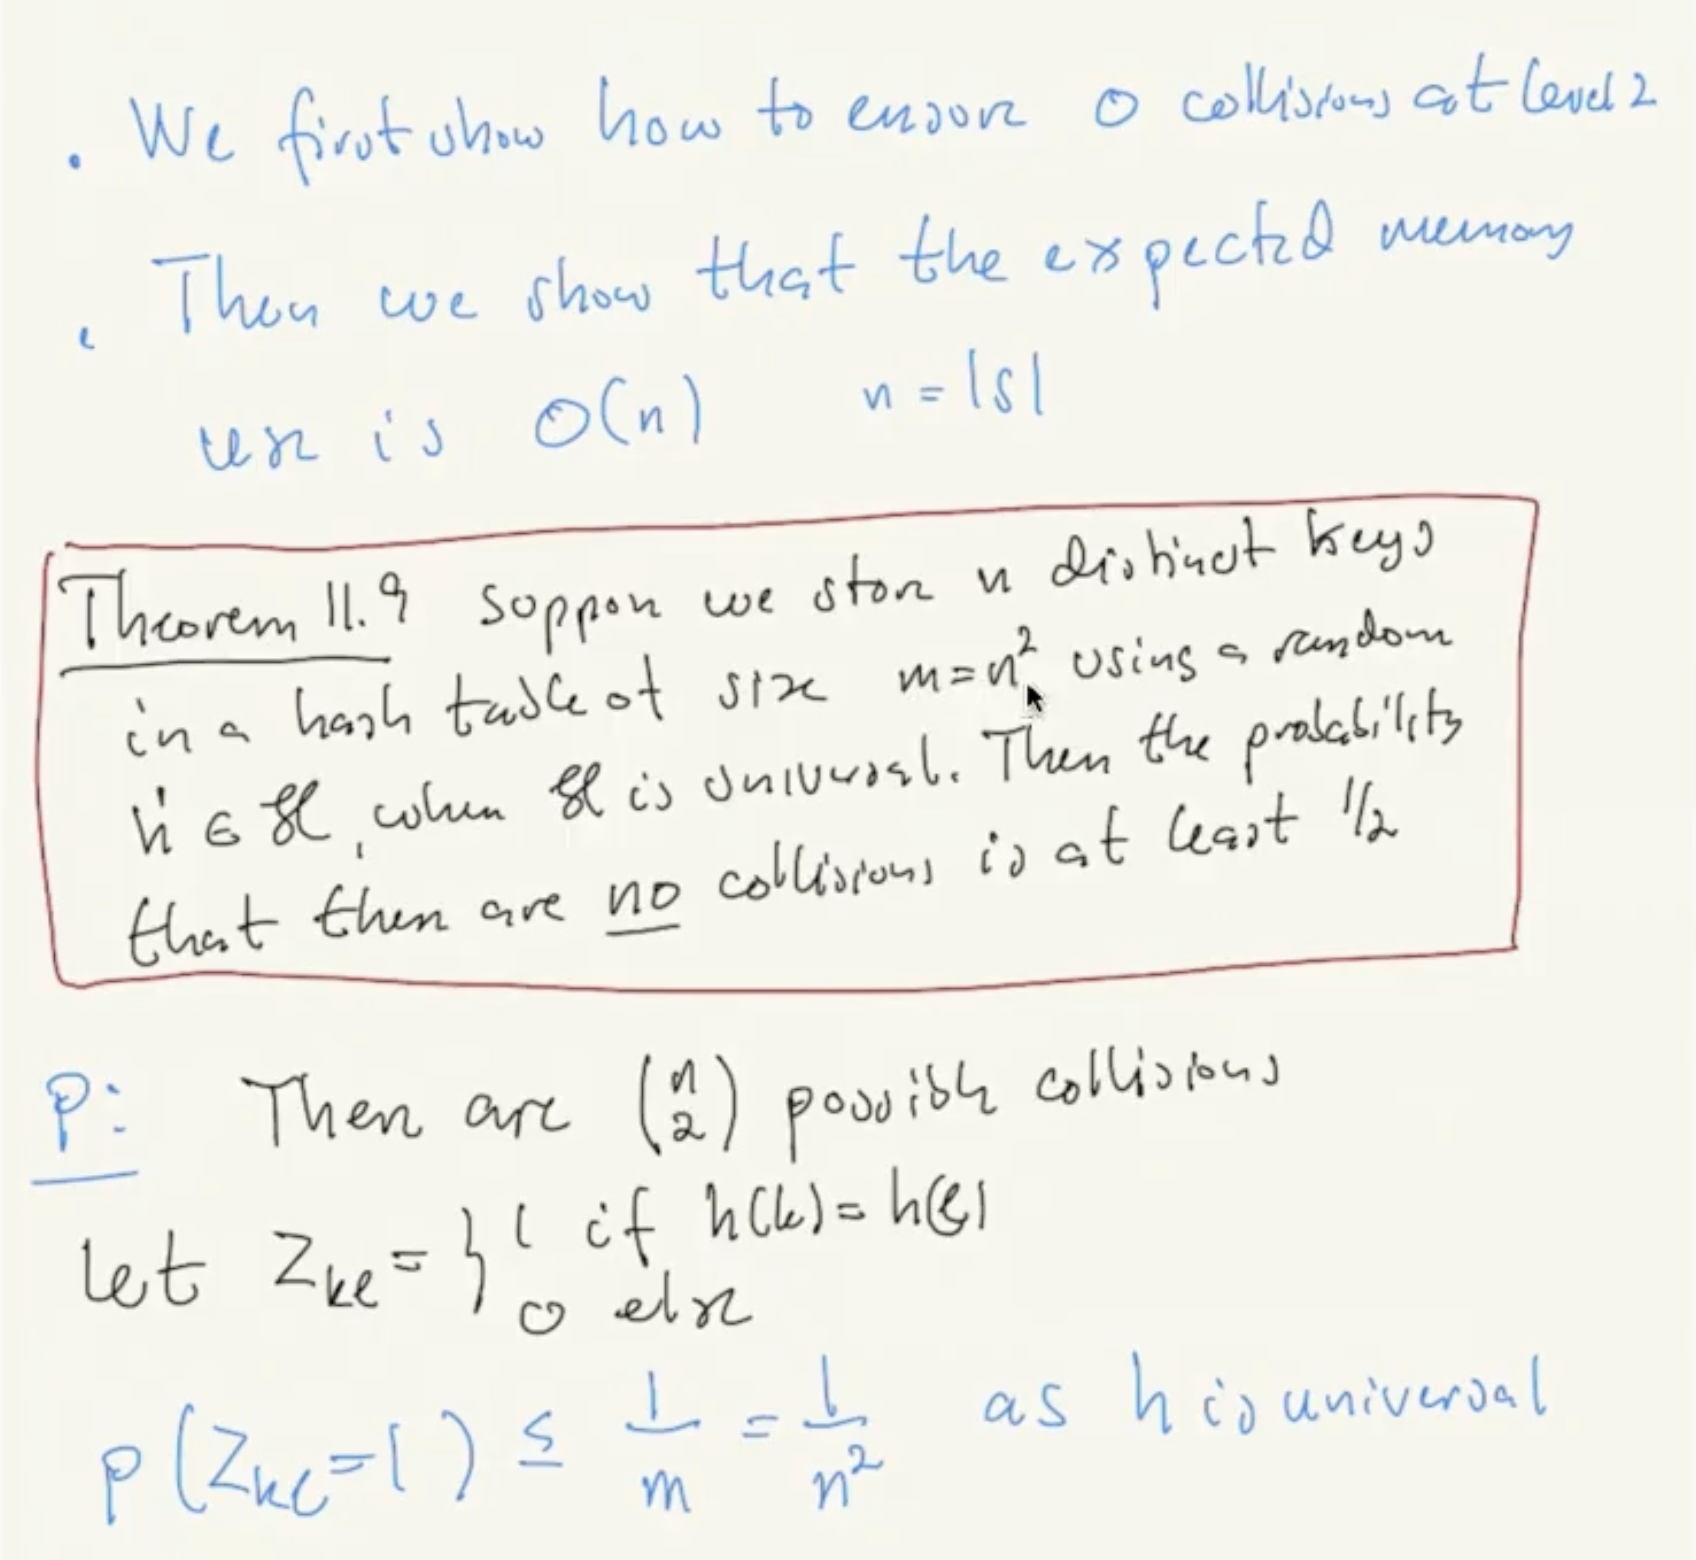 . We first show how to ensure 0 collisions at level 2
. Then we show that the expected memory
use is O(n) n = |S|
Theorem 11.9 Suppose we store n distinct keys
in a hash table of size m = n² using a random
h ∈ ℋ, when ℋ is universal. Then the probability
that there are no collisions is at least 1/2
P: There are (n 2) possible collisions
Let Z_kl = { 1 if h(k) = h(l)
0 else
P(Z_kl = 1) ≤ 1/m = 1/n² as h is universal